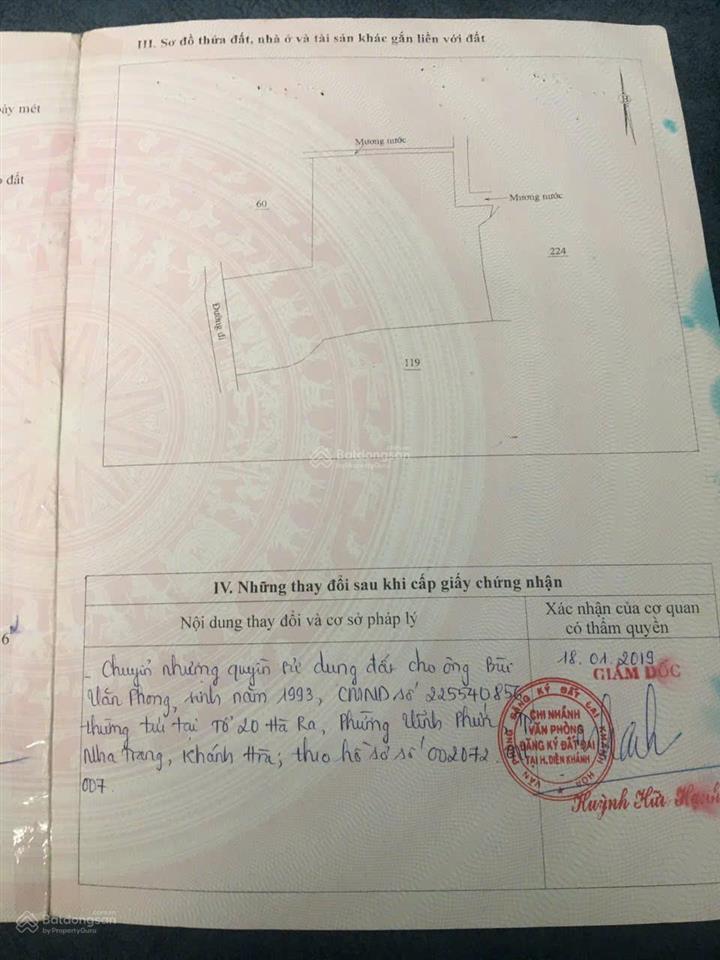 bảy mét
đất
6
III. Sơ đồ thửa đất, nhà ở và tài sản khác gắn liền với đất
Mương nước
60
Mương nước
224
Đường đi
119
Batdongsan
by PropertyGuru
IV. Những thay đổi sau khi cấp giấy chứng nhận
Nội dung thay đổi và cơ sở pháp lý
Xác nhận của cơ quan
có thẩm quyền
- Chuyển nhượng quyền sử dụng đất cho ông Bùi
Văn Phong, sinh năm 1993, CMND số 22554085
thường trú tại Tổ 20 Hà Ra, Phường Vĩnh Phước
Nha Trang, Khánh Hòa; theo hồ sơ số 002072
007.
18.01.2019
GIÁM ĐỐC
VĂN PHÒNG ĐĂNG KÝ ĐẤT ĐAI KHÁNH HÒA
CHI NHÁNH
VĂN PHÒNG
ĐĂNG KÝ ĐẤT ĐAI
TẠI H. DIÊN KHÁNH
Huỳnh Hữu
Batdongsan
by PropertyGuru